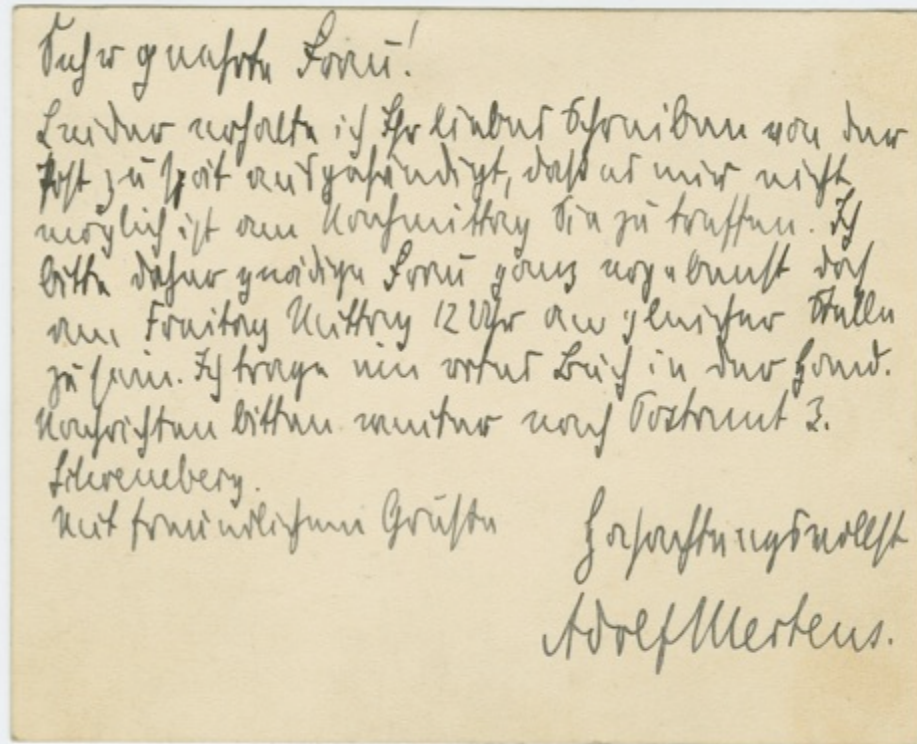 Sehr geehrte Frau!
Leider erhalte ich Ihr liebes Schreiben von der
Post zu spät ausgehändigt, daß es mir nicht
möglich ist am Nachmittag Sie zu treffen. Ich
bitte daher gnädige Frau ganz ergebenst doch
am Freitag Mittag 12 Uhr an gleicher Stelle
zu sein. Ich trage ein rotes Buch in der Hand.
Nachrichten bitten weiter nach Postamt 3.
Schöneberg.
Mit freundlichem Gruße
Hochachtungsvollst
Adolf Mertens.